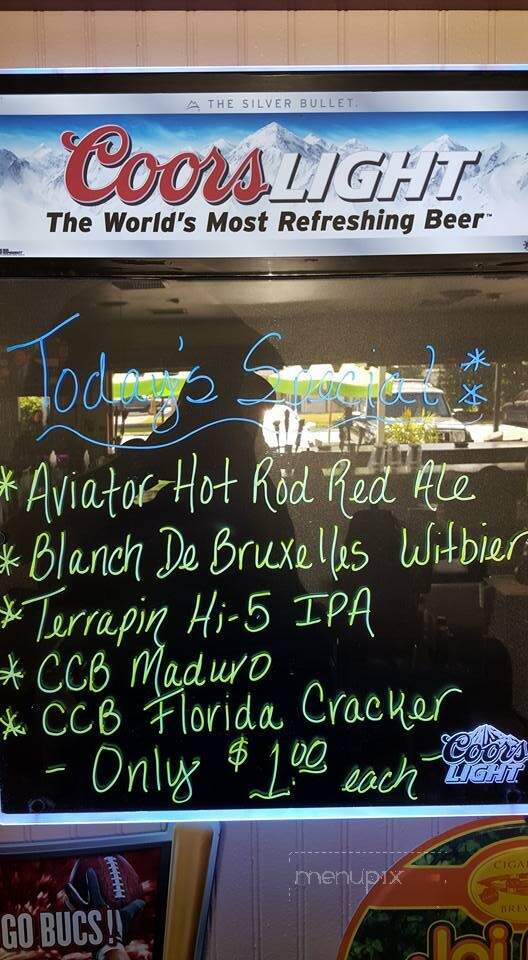 THE SILVER BULLET.
Coors LIGHT
The World's Most Refreshing Beer™
Today's Special **
* Aviator Hot Rod Red Ale
* Blanch De Bruxelles Witbier
* Terrapin Hi-5 IPA
* CCB Maduro
* CCB Florida Cracker
- Only $1.00 each -
Coors
LIGHT
menupix
GO BUCS!!
CIGA
BREW
Jai